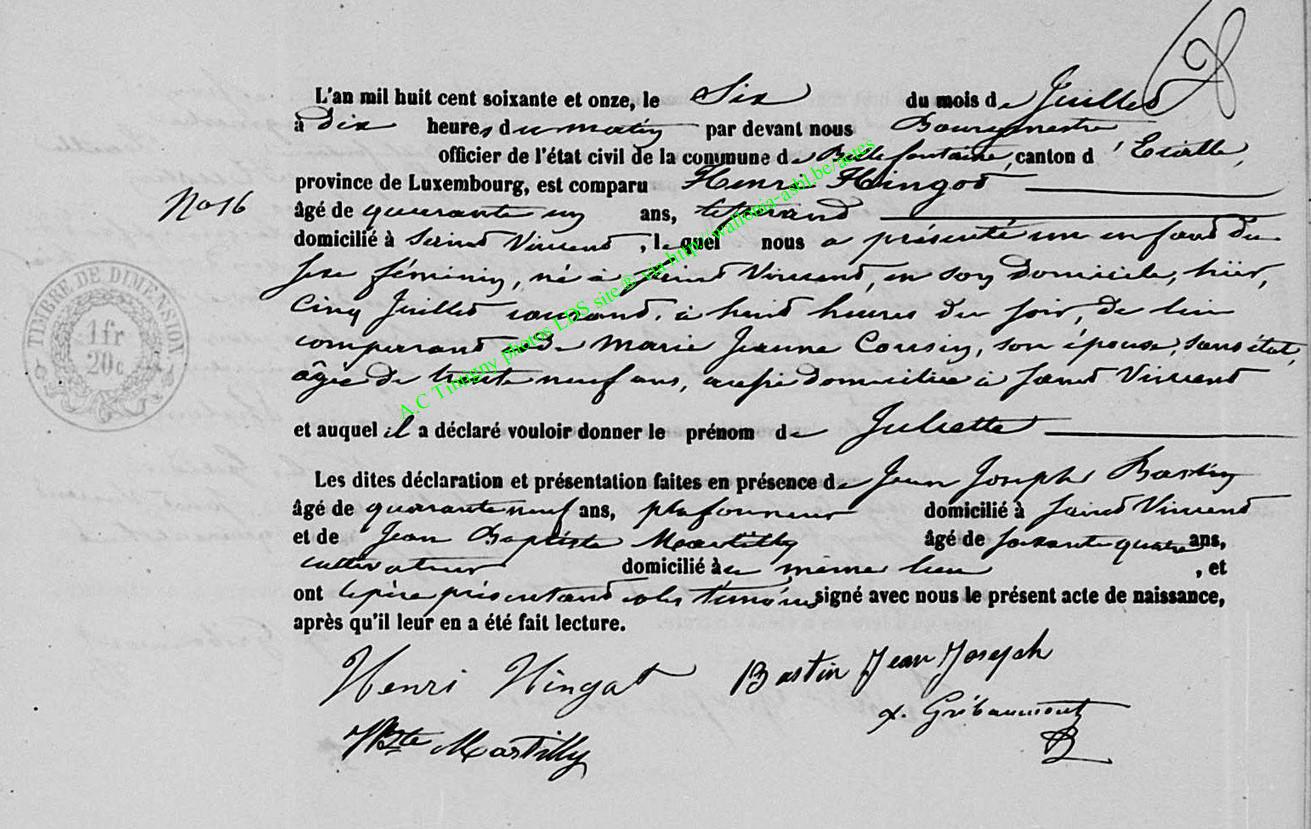 L'an mil huit cent soixante et onze, le Six du mois de Juillet
à Dix heures du matin par devant nous Bourgmestre
officier de l'état civil de la commune de Bellefontaine, canton d'Etalle,
province de Luxembourg, est comparu Henri Hingot
No 16
âgé de quarante un ans,
domicilié à Saint Vincent, lequel nous a présenté un enfant du
sexe féminin, né à Saint Vincent, en son domicile, hier,
cinq Juillet courant, à huit heures du soir, de lui
comparant et de Marie Jeanne Cousin, son épouse, sans état,
âgée de trente neuf ans, aussi domiciliée à Saint Vincent
et auquel il a déclaré vouloir donner le prénom de Juliette
Les dites déclaration et présentation faites en présence de Jean Joseph Bastin
âgé de quarante neuf ans, plafonneur domicilié à Saint Vincent
et de Jean Baptiste Martilly âgé de soixante quatre ans,
cultivateur domicilié au même lieu, et
ont le père présentant et les témoins signé avec nous le présent acte de naissance,
après qu'il leur en a été fait lecture.
Henri Hingat Bastin Jean Joseph
Gribaumont
JBte Martilly
TIMBRE DE DIMENSION
1 fr
20 c.
A.C Tintigny photos LDS site-a- via http://wallonia-asbl.be/actes